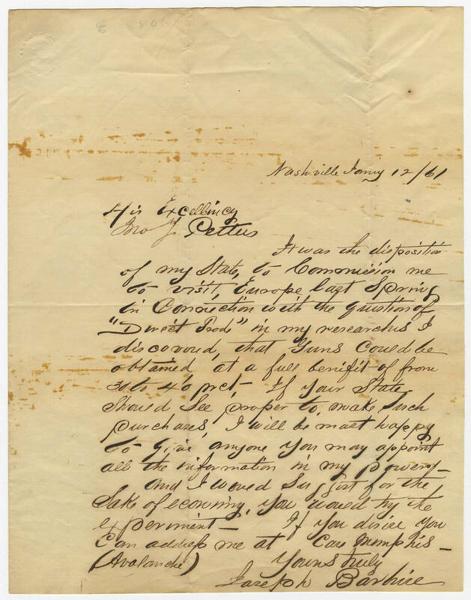 Nashville Jany 12/61
His Excellency
Jno J. Pettus
It was the disposition
of my State, to Commission me
to visit, Europe last Spring
in Connection with the question of
"Direct Trade" in my researches I
discovered, that Guns Could be
obtained at a full benefit of from
30 to 40 pct,- If your State
Should See proper to, make Such
purchases, I will be most happy
to Give anyone you may appoint
all the information in my power-
And I would Suggest for the
Sake of economy, you would try the
experiment- If you desire you
Can address me at Care Memphis-
(Avalanche) Yours truly
Joseph Barbiere